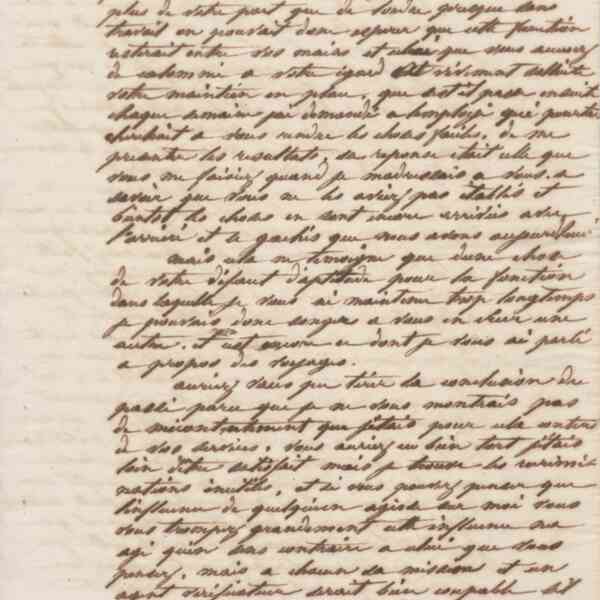 plus de votre part que de rendre presque sans
travail on pouvait donc esperer que cette fonction
resterait entre vos mains et celui que vous accusez
de calomnie a votre egard et vivement sollicité
votre maintien en place, que s'est il passé ensuite
chaque semaine j'ai demandé a l'employé qui pourtant
cherchait a vous rendre les choses faciles, de me
presenter les resultats, sa reponse était celle que
vous me faisiez quand je m'adressais a vous, a
savoir que vous ne les aviez pas établis et
bientot les choses en sont encore arrivées avec
l'arriéré et le gachis que nous avons aujourd'hui
mais cela ne temoigne que d'une chose
de votre défaut d'aptitude pour la fonction
dans laquelle je vous ai maintenu trop longtemps
je pouvais donc songer a vous en créer une
autre, et c'est encore ce dont je vous ai parlé
a propos des voyages.
auriez vous pu tirer la conclusion du
passé parce que je ne vous montrais pas
de mécontentement que j'étais pour cela content
de vos services, vous auriez eu bien tort j'étais
loin d'être satisfait mais je trouve les recrimi-
nations inutiles, et si vous pouvez penser que
l'influence de quelqu'un agisse sur moi vous
vous trompez grandement cette influence na
agi qu'en sens contraire a celui que vous
pensez, mais a chacun sa mission et un
agent verificateur serait bien coupable s'il